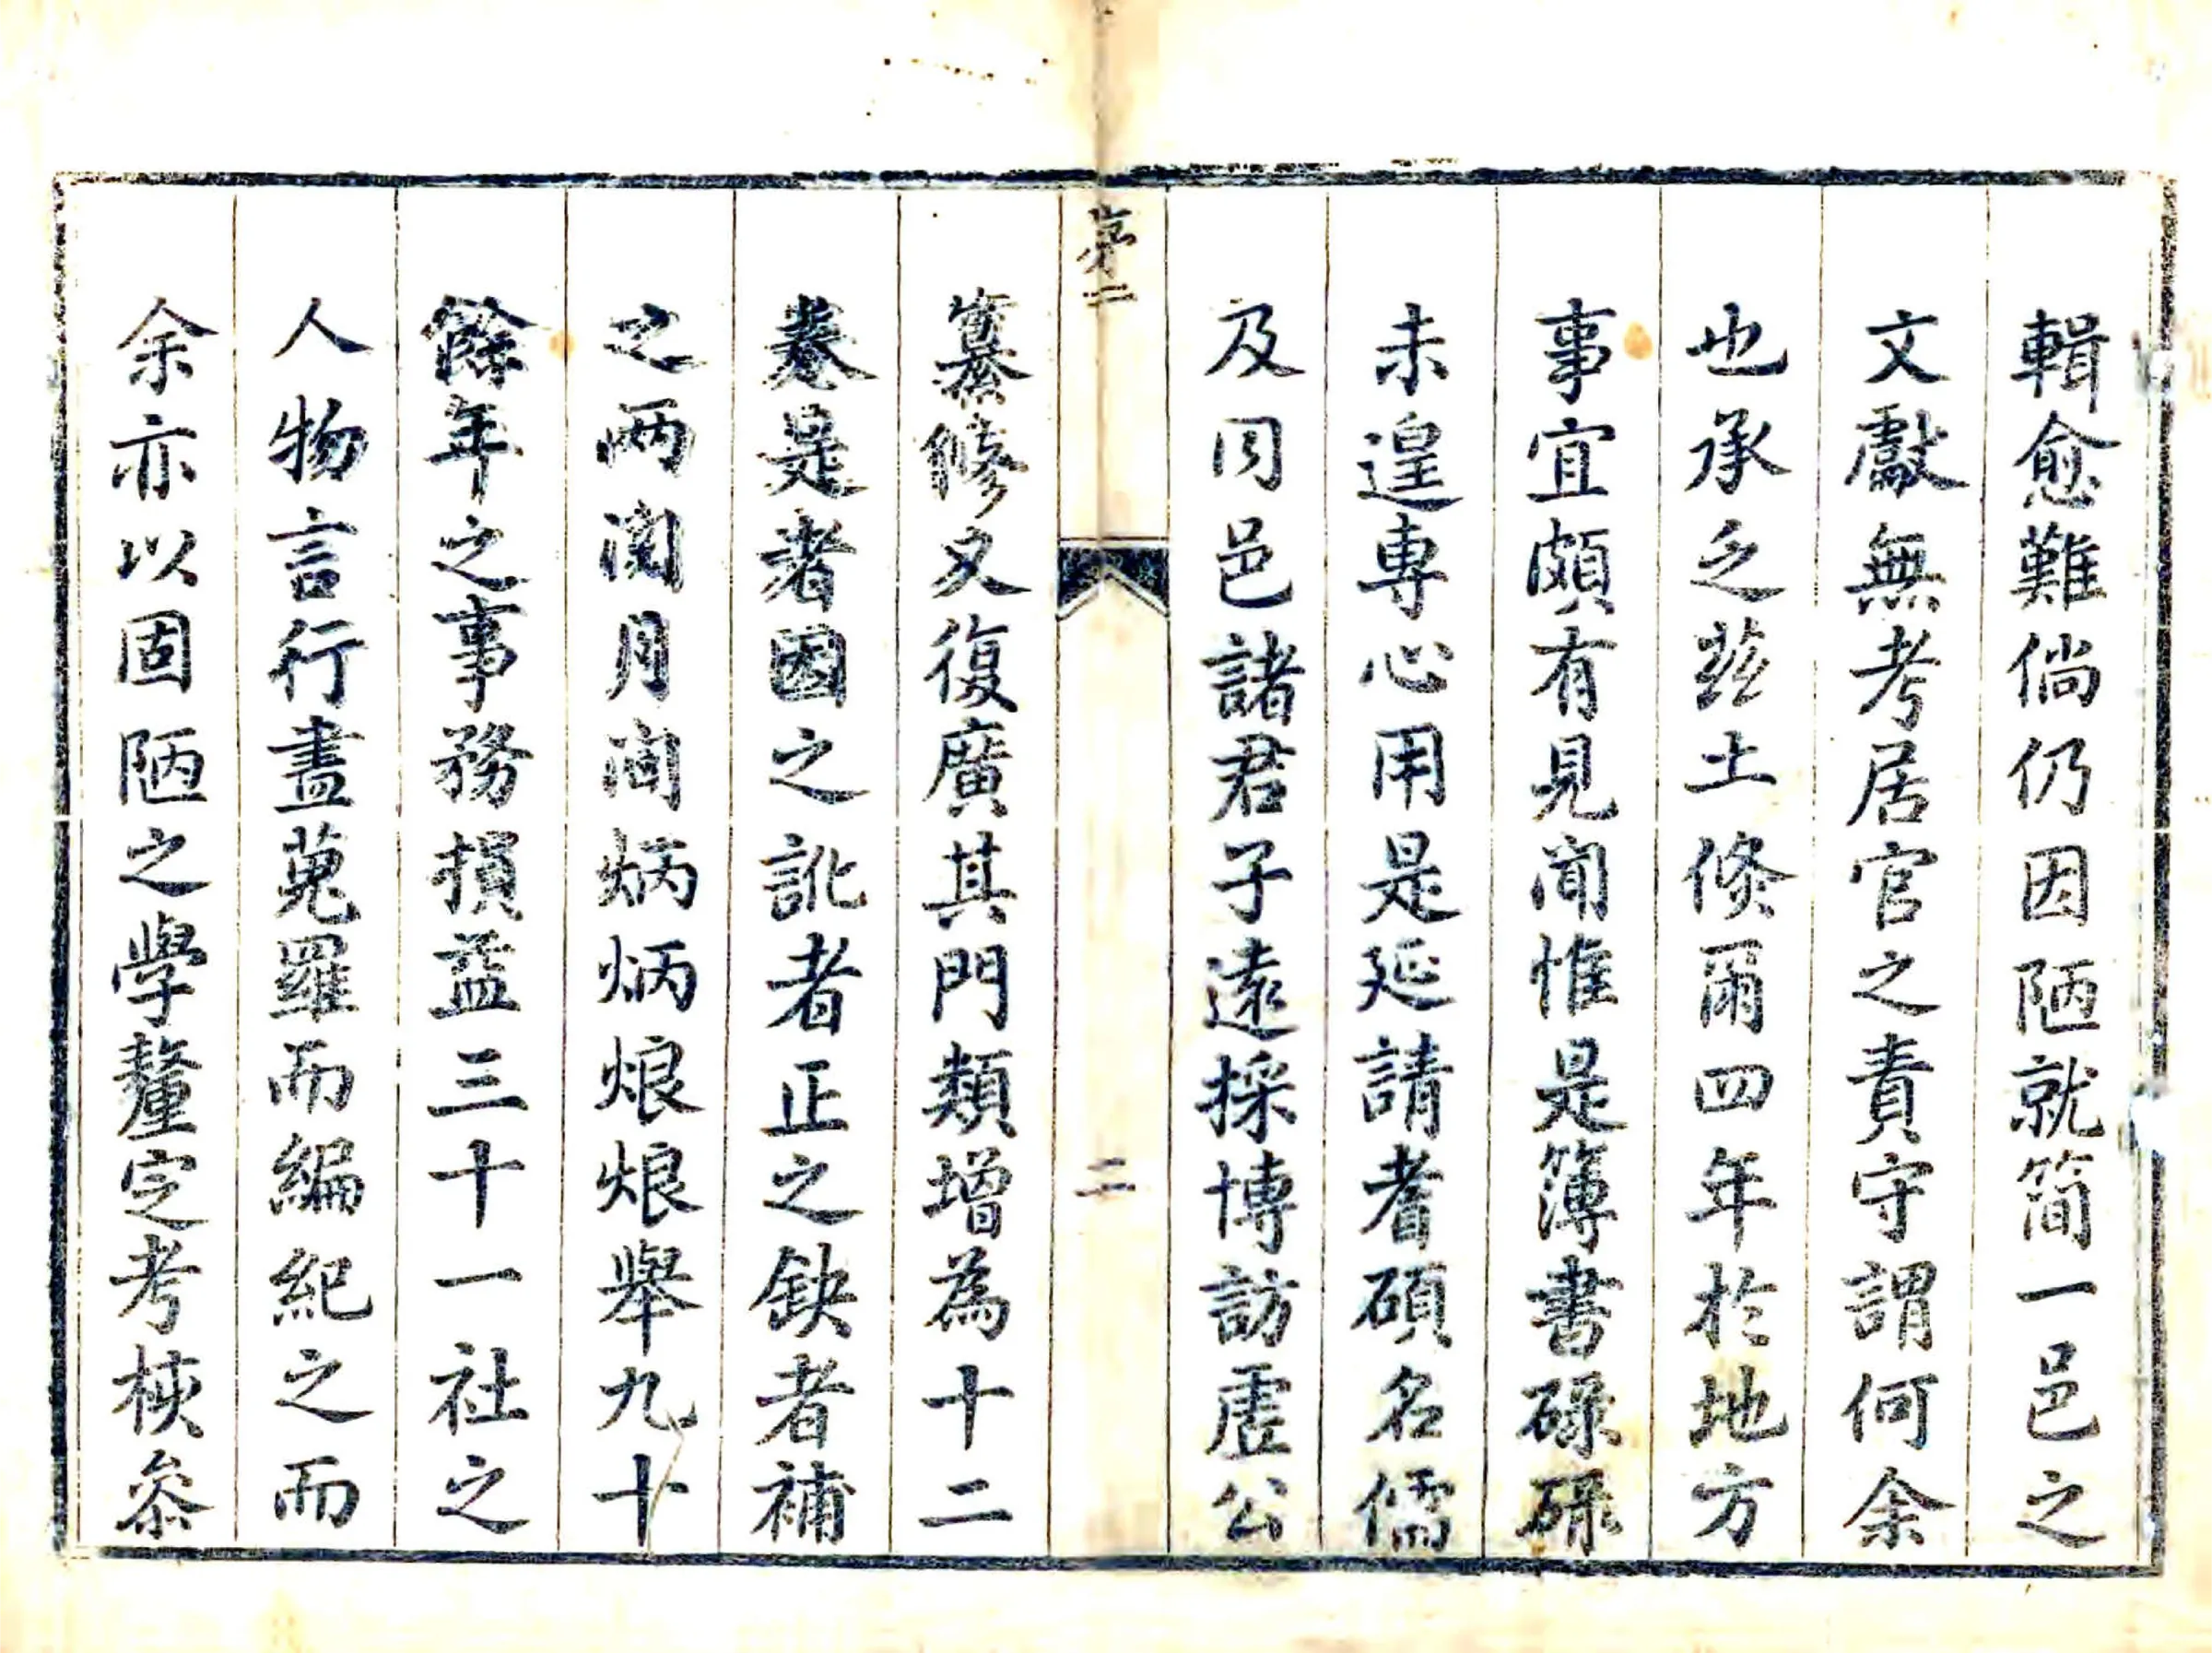 輯愈難倘仍因陋就简一邑之
文獻無考居官之責守謂何余
也承乏兹土倏爾四年於地方
事宜頗有見聞惟是簿書碌碌
未遑專心用是延請耆碩名儒
及同邑諸君子遠採博訪虛公
序二
二
纂修又復廣其門類增為十二
卷是者因之訛者正之鈌者補
之兩閱月間炳炳烺烺舉九十
餘年之事務損益三十一社之
人物言行盡蒐羅而編紀之而
余亦以固陋之學釐定考核叅